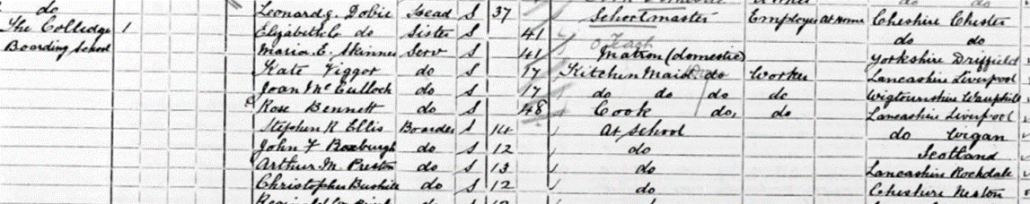 do
The Colledge 1 Leonard G. Dobie Head S 37 Schoolmaster Employer at Home Cheshire Chester
Boarding School Elizabeth C do Sister S 41 do do
Maria E. Skinner Serv S 41 Matron (domestic) Yorkshire Driffield
Kate Viggor do S 17 Kitchen Maid do Worker Lancashire Liverpool
Joan McCulloch do S 17 do do do do Wigtownshire
Rose Bennett do S 48 Cook do, do Lancashire Liverpool
Stephen K Ellis Boarder S 14 At School do Wigan
John F Boxburgh do S 12 do Scotland
Arthur M. Preston do S 13 do Lancashire Rochdale
Christopher Bushell do S 12 do Cheshire Neston